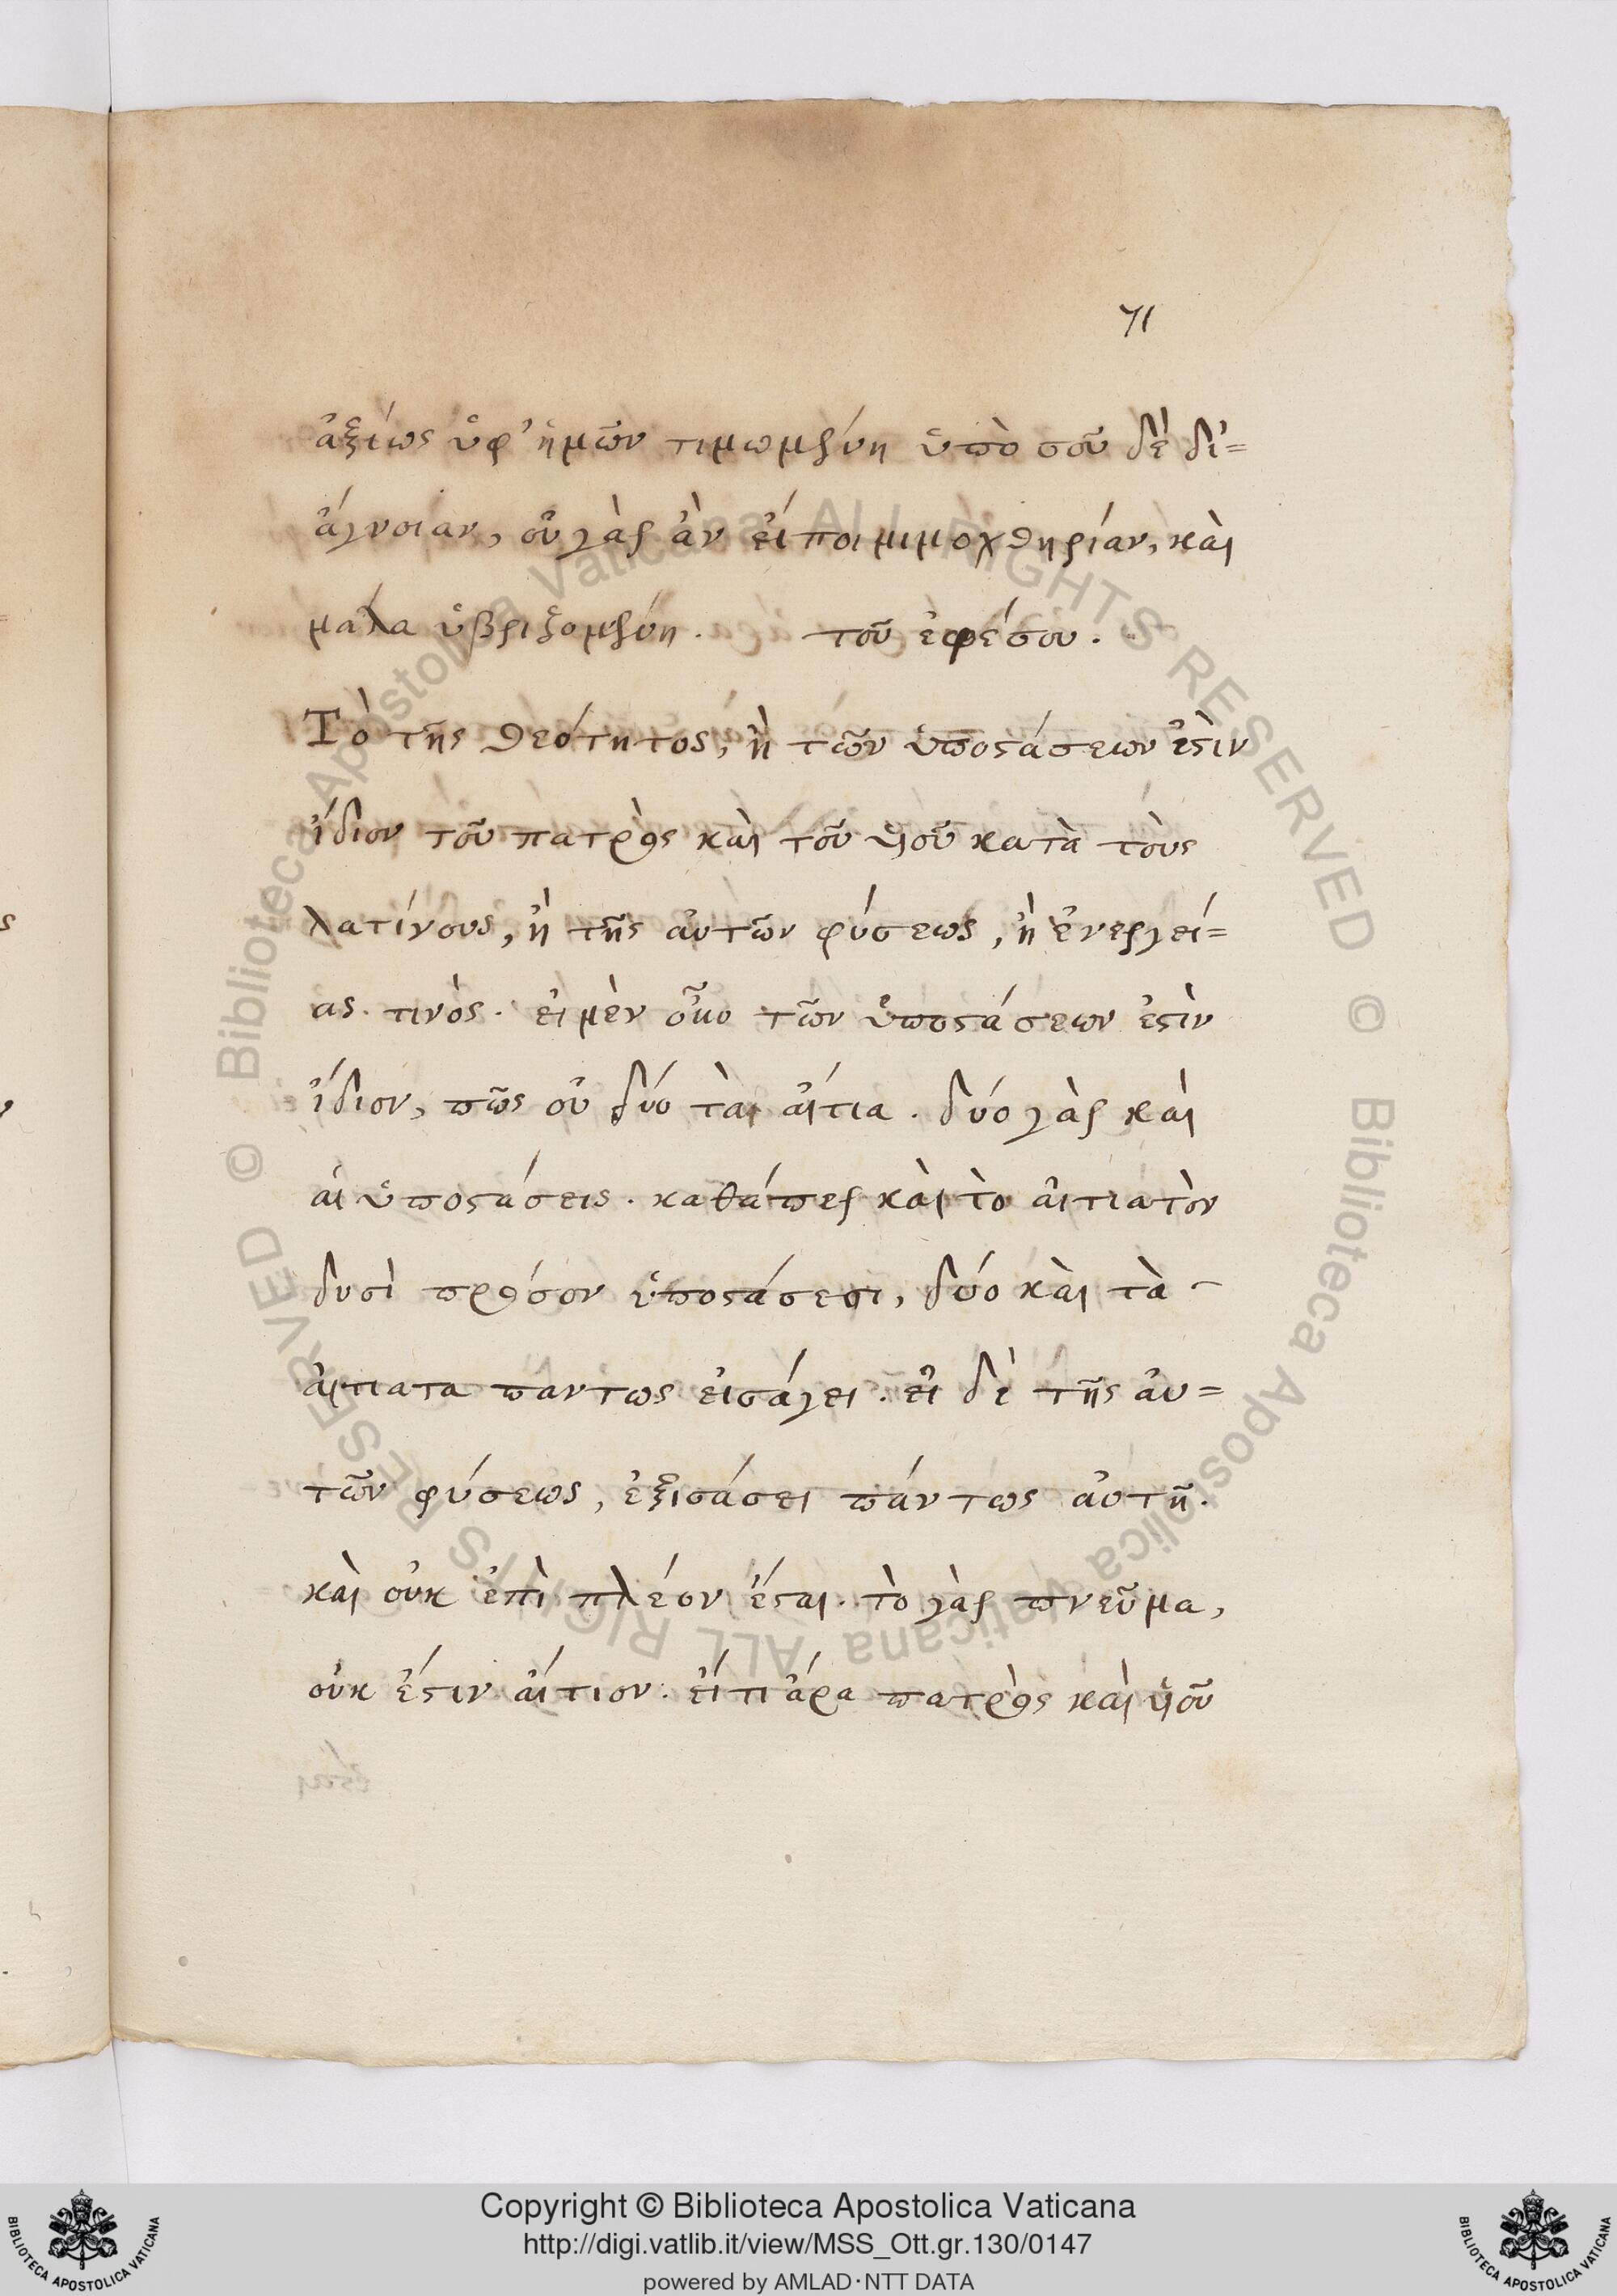 71
ἀξίως ὑφ' ἡμῶν τιμωμένη ὑπὸ σοῦ δὲ δι'=
ἄγνοιαν, οὐ γὰρ ἂν εἴποιμι μοχθηρίαν, καὶ
μαλα ὑβριζομένη. τοῦ ἐφέσου.
Τὸ τῆς θεότητος, ἢ τῶν ὑποστάσεων ἐστὶν
ἴδιον τοῦ πατρὸς καὶ τοῦ υἱοῦ κατὰ τοὺς
λατίνους, ἢ τῆς αὐτῶν φύσεως, ἢ ἐνεργεί=
ας τινὸς. εἰ μὲν οὖν τῶν ὑποστάσεων ἐστὶν
ἴδιον, πῶς οὐ δύο τὰ αἴτια. δύο γὰρ καὶ
αἱ ὑποστάσεις. καθάπερ καὶ τὸ αἰτιατὸν
δυσὶ προσὸν ὑποστάσεσι, δύο καὶ τὰ
αἰτιατα παντως εἰσάγει. εἰ δὲ τῆς αὐ=
τῶν φύσεως, ἐξισάσει πάντως αὐτῆ.
καὶ οὐκ ἐπὶ πλέον ἔσται. τὸ γὰρ πνεῦμα,
οὐκ ἔστιν αἴτιον. εἴ τι ἄρα πατρὸς καὶ υἱοῦ
Copyright © Biblioteca Apostolica Vaticana
http://digi.vatlib.it/view/MSS_Ott.gr.130/0147
powered by AMLAD·NTT DATA
BIBLIOTECA APOSTOLICA VATICANA
BIBLIOTECA APOSTOLICA VATICANA
© Biblioteca Apostolica Vaticana ALL RIGHTS RESERVED
© Biblioteca Apostolica Vaticana ALL RIGHTS RESERVED